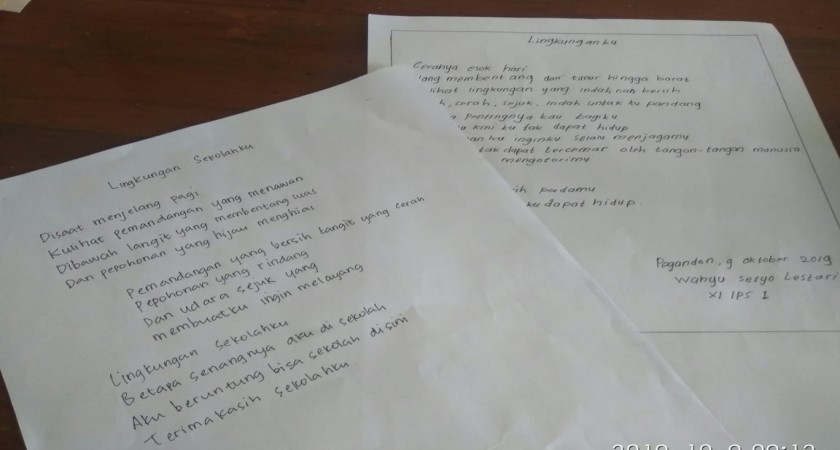 Lingkungan Sekolahku
Disaat menjelang pagi
Kulihat pemandangan yang menawan
Dibawah langit yang membentang luas
Dan pepohonan yang hijau menghias
Pemandangan yang bersih langit yang cerah
Pepohonan yang rindang
Dan udara sejuk yang
membuatku ingin melayang
Lingkungan sekolahku
Betapa senangnya aku di sekolah
Aku beruntung bisa sekolah disini
Terimakasih sekolahku
Lingkunganku
Cerahya esok hari
membentang dari timur hingga barat
lihat lingkungan yang indah nan bersih
h, cerah, sejuk, indah untuk ku pandang
pentingnya kau bagiku
u kini ku tak dapat hidup
ku inginku selalu menjagamu
tak dapat tercemar oleh tangan-tangan manusia
mengotorimu
ih padamu
ku dapat hidup.
Pagandon, 9 Oktober 2019
Wahyu Setyo Lestari
XI IPS 1